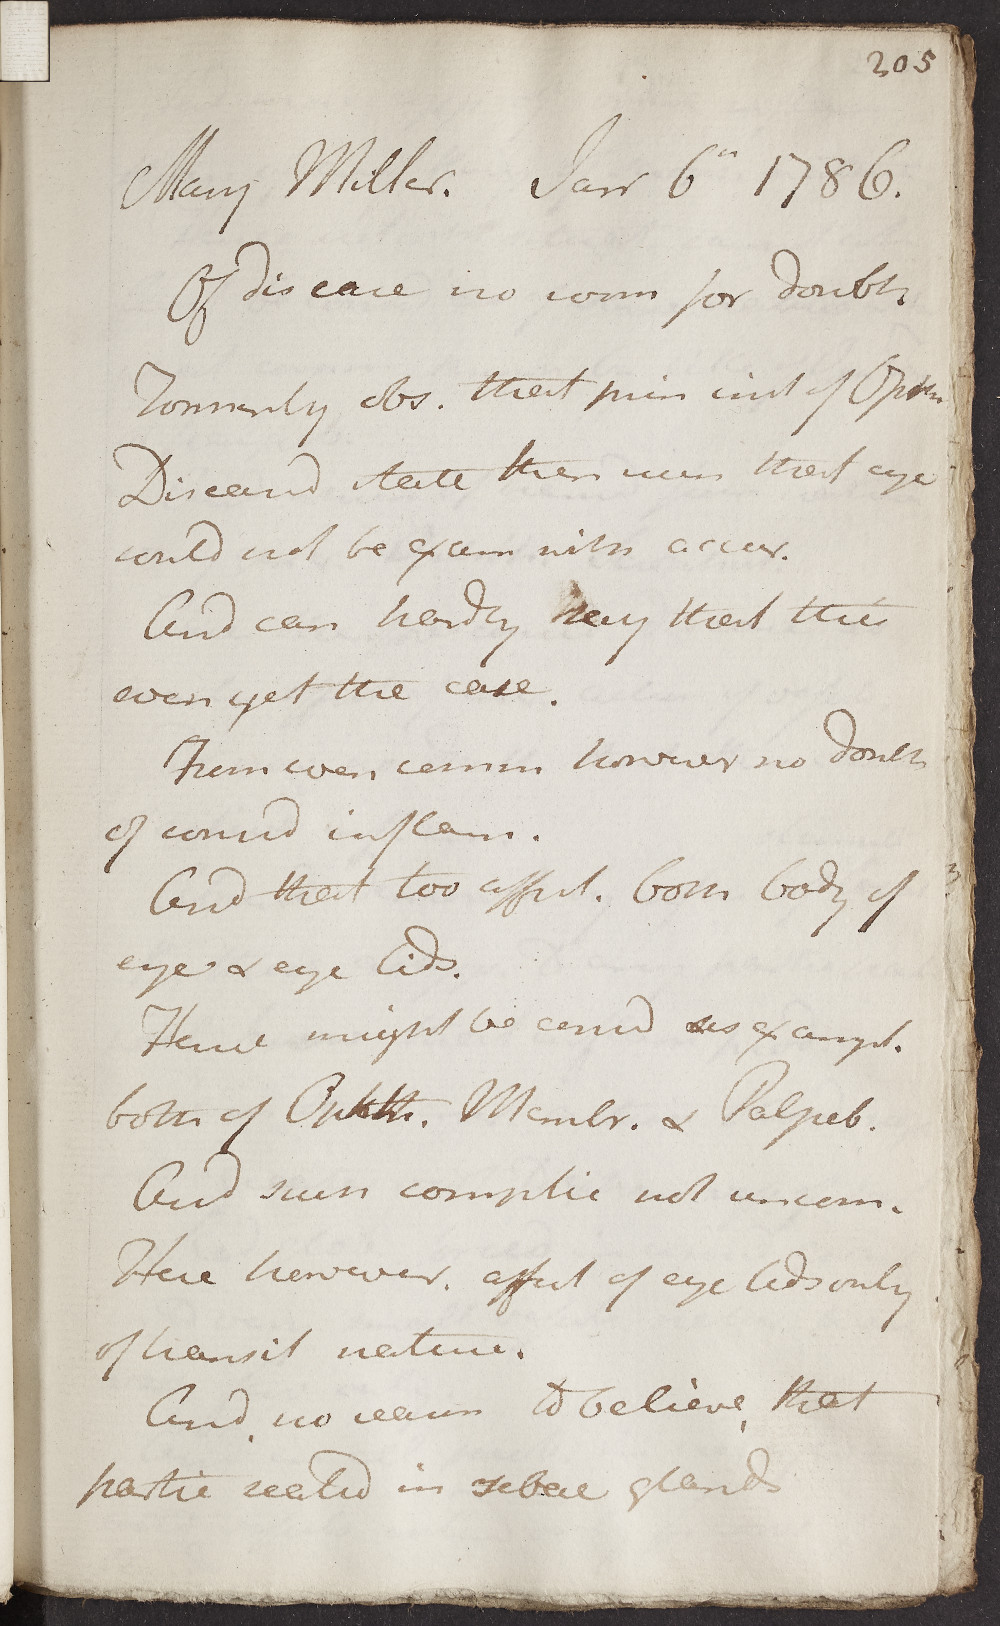 205
Mary Miller. Janr 6th 1786.
Of disease no room for doubt
Formerly obs. that prin inst of Opth
Diseased state then such that eye
could not be exam with accur.
And can hardly say that this
even yet the case.
From even common however no doubt
of consid inflam.
And that too affect. both body of
eye & eye lids.
Hence might be consid as exampl.
both of Ophth. Membr. & Palpeb.
And such complic not uncom.
Here however. affect of eye lids only
of transit nature.
And, no reason to believe, that
partic seated in sebac glands